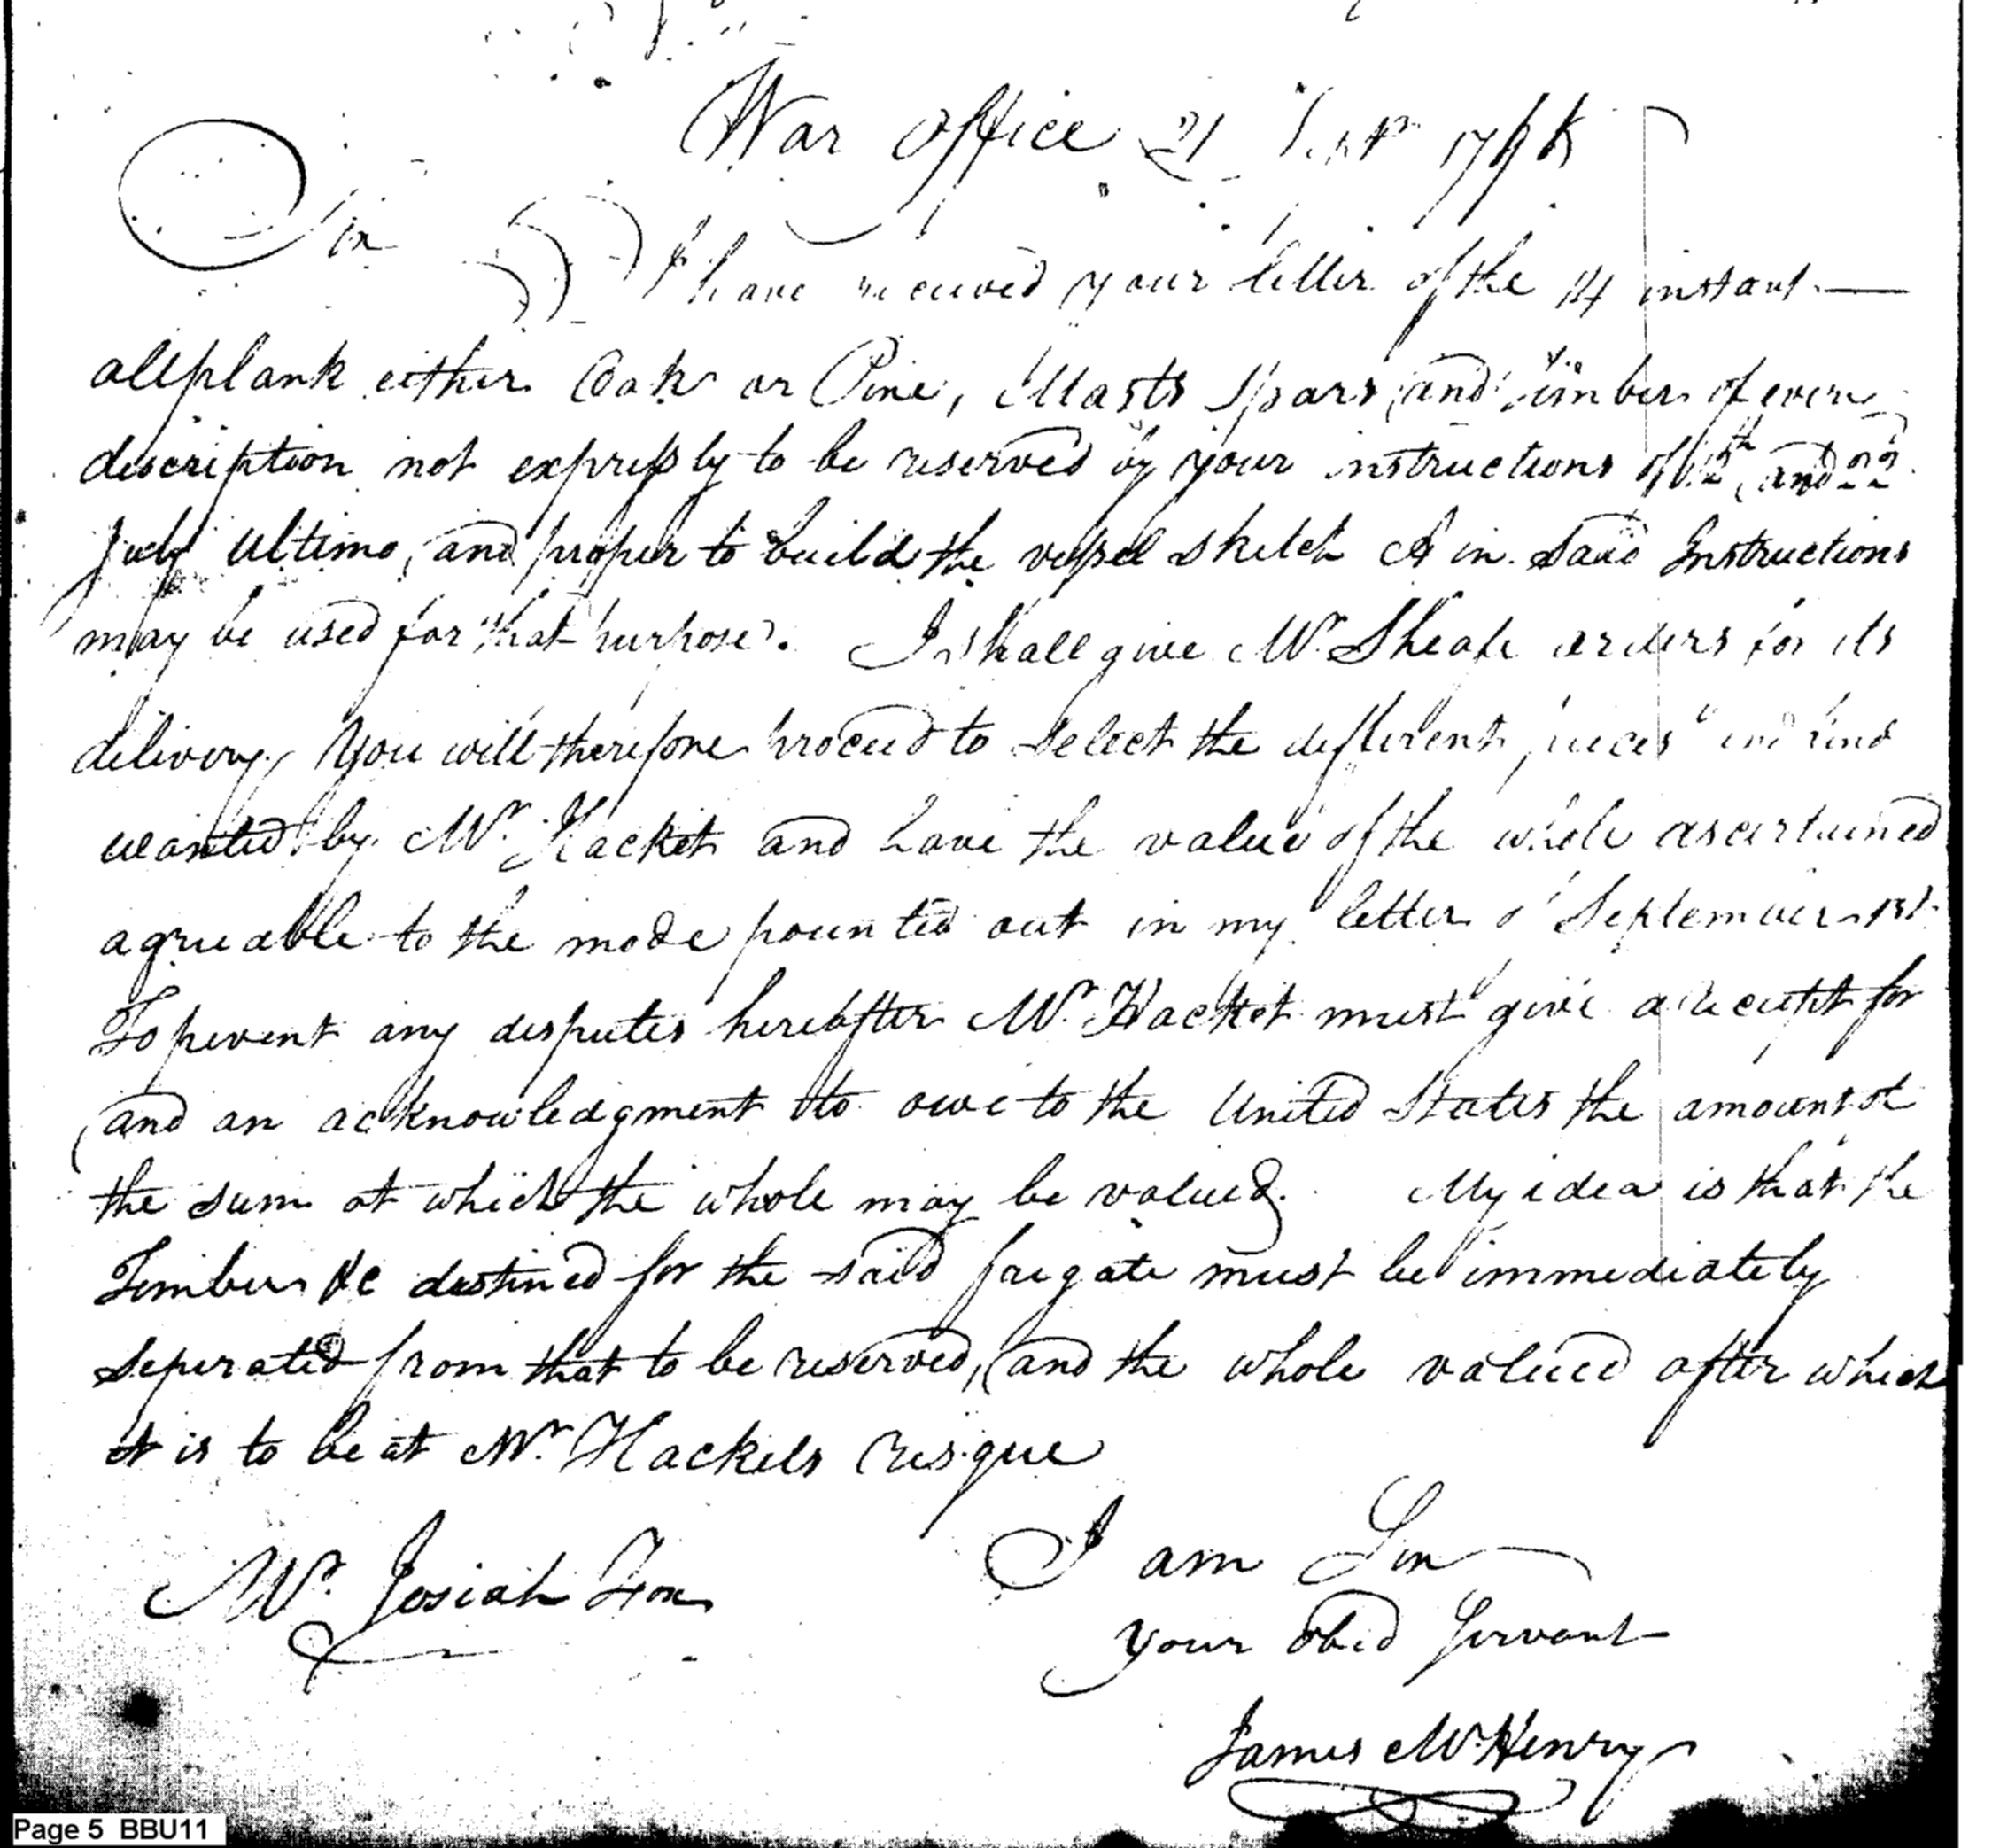 War Office 21 Sept.r 1796
Sir
I have received your letter of the 14 instant.—
all plank either Oak or Pine, Masts Spars, and Timber of every
description not expressly to be reserved by your instructions of 12th, and 22
July Ultimo, and proper to build the vessel sketch A in said Instructions
may be used for that purpose. I shall give Mr. Sheafe orders for its
delivery. You will therefore proceed to select the different pieces and kind
wanted by Mr. Hacket and have the value of the whole ascertained
agreeable to the mode pointed out in my letter of September 1st.
To prevent any disputes hereafter Mr. Hacket must give a receipt for
and an acknowledgment to owe to the United States the amount of
the sum at which the whole may be valued. My idea is that the
Timber &c destined for the said frigate must be immediately
seperated from that to be reserved, and the whole valued after which
it is to be at Mr. Hackets risque
I am Sir
Mr. Josiah Fox
your obed Servant
James McHenry
Page 5 BBU11